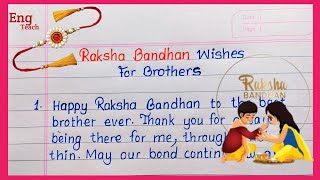 Eng
Teach
Raksha Bandhan Wishes
For Brothers
Raksha
BANDHAN
1. Happy Raksha Bandhan to the best
brother ever. Thank you for
being there for me, through
thin. May our bond contin